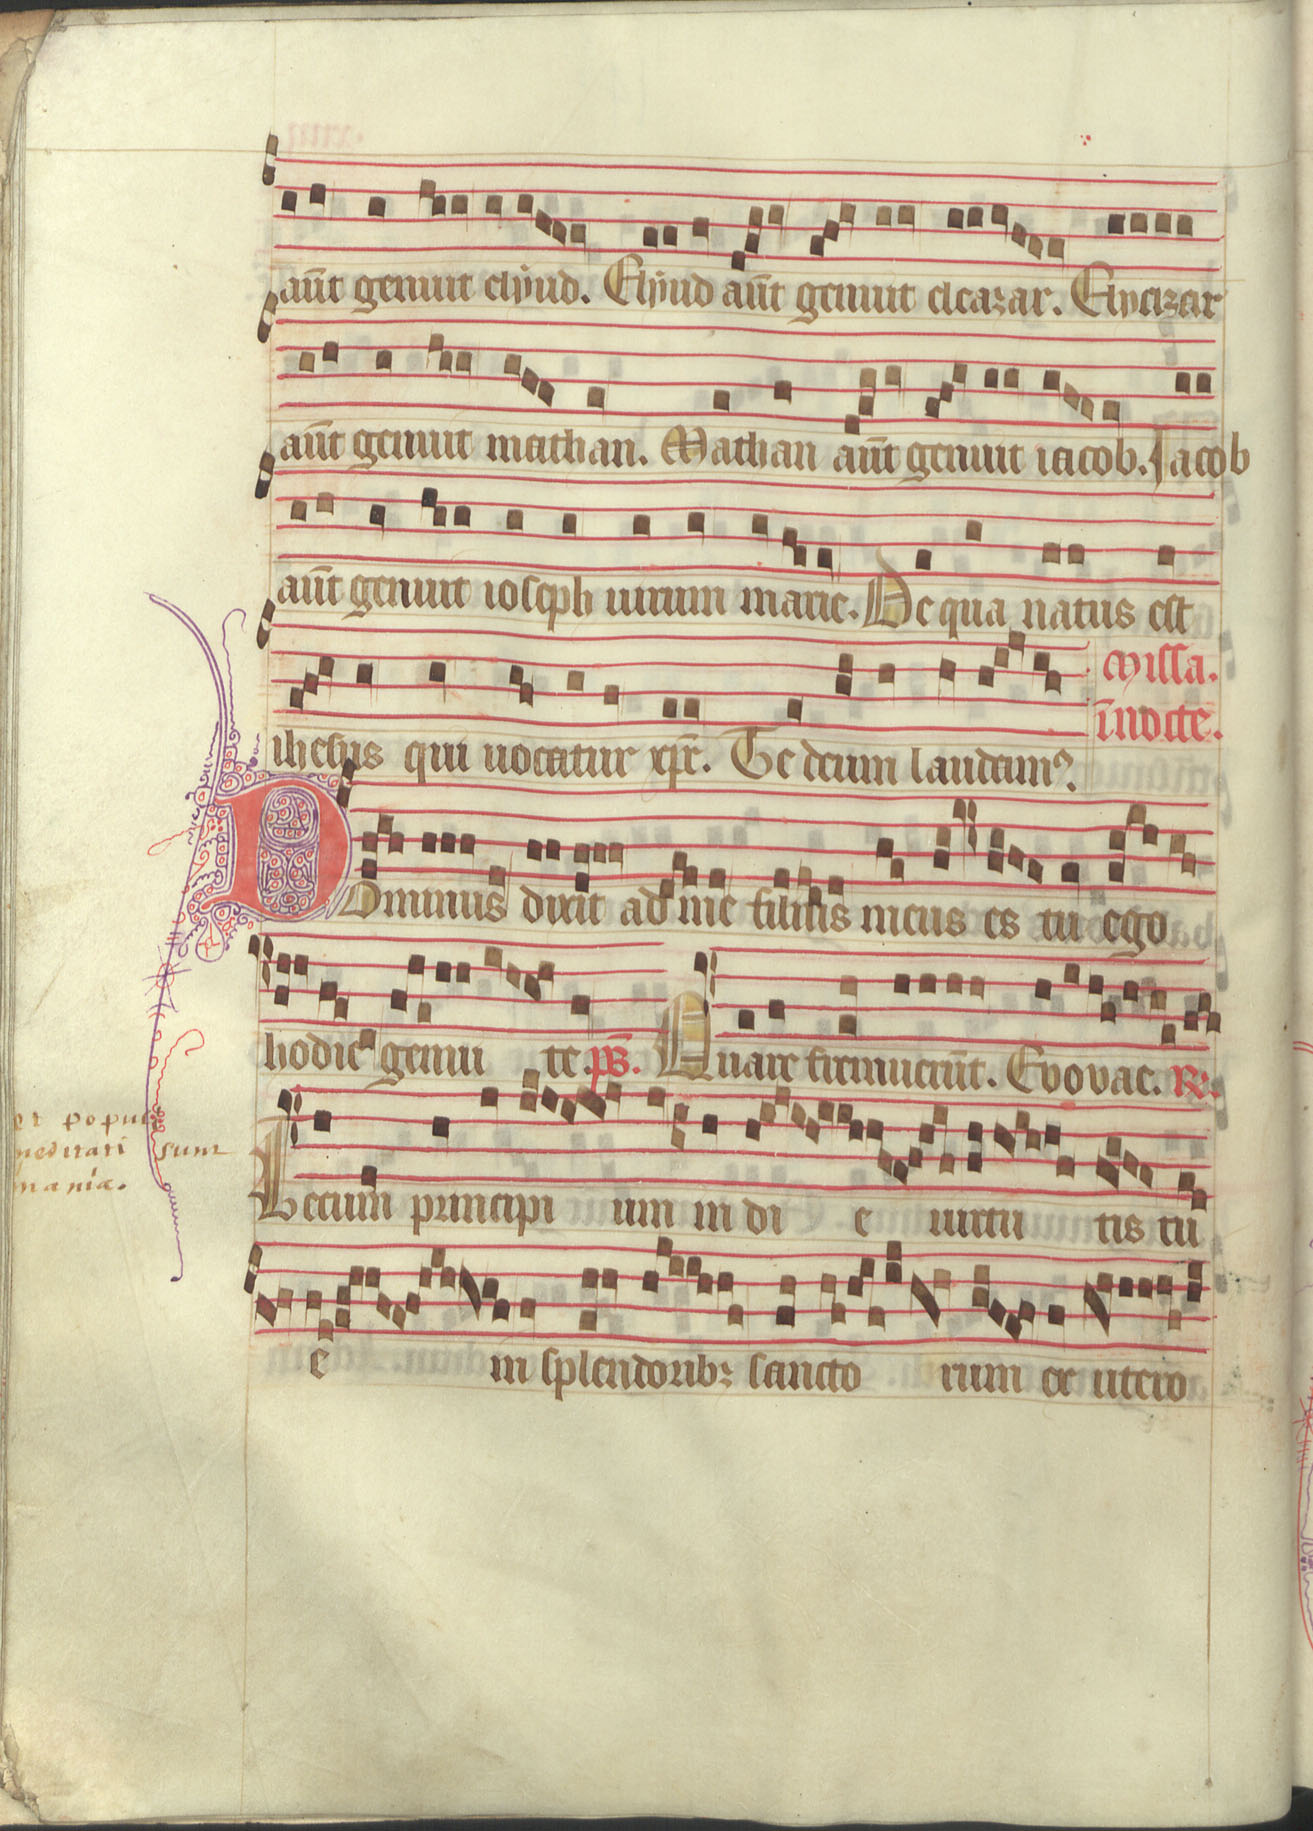 aūt genuit elyud. Elyud aūt genuit eleazar. Eleazar
aūt genuit mathan. Mathan aūt genuit iacob. Jacob
aūt genuit ioseph uirum marie. De qua natus est
ihesus qui uocatur xp̄r. Te deum laudamꝰ.
Missa.
ī nocte.
Dominus dixit ad me filius meus es tu ego
hodie genui te. p̄s. Quare fremuerūt. Evovae. R̄.
et popu
meditati sunt
inania.
Tecum principi um in di e uirtu tis tu
e in splendoribꝫ sancto rum ex utero